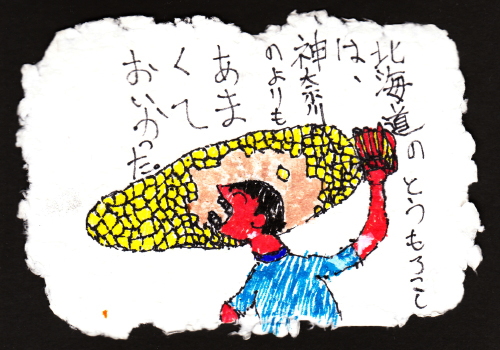 北海道のとうもろこし
は、
神奈川
のよりも
あま
くて
おいしかった。